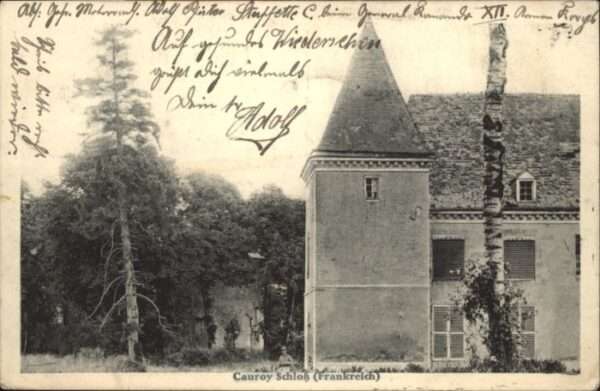 Abs. Gefr. Motorradf. Adolf Stafette C, beim General Komando XII. Armee Korps
Auf gesundes Wiedersehen
grüßt dich vielmals
Dein tr.
Adolf
Schreib bitte recht
bald wieder.
Cauroy Schloß (Frankreich)